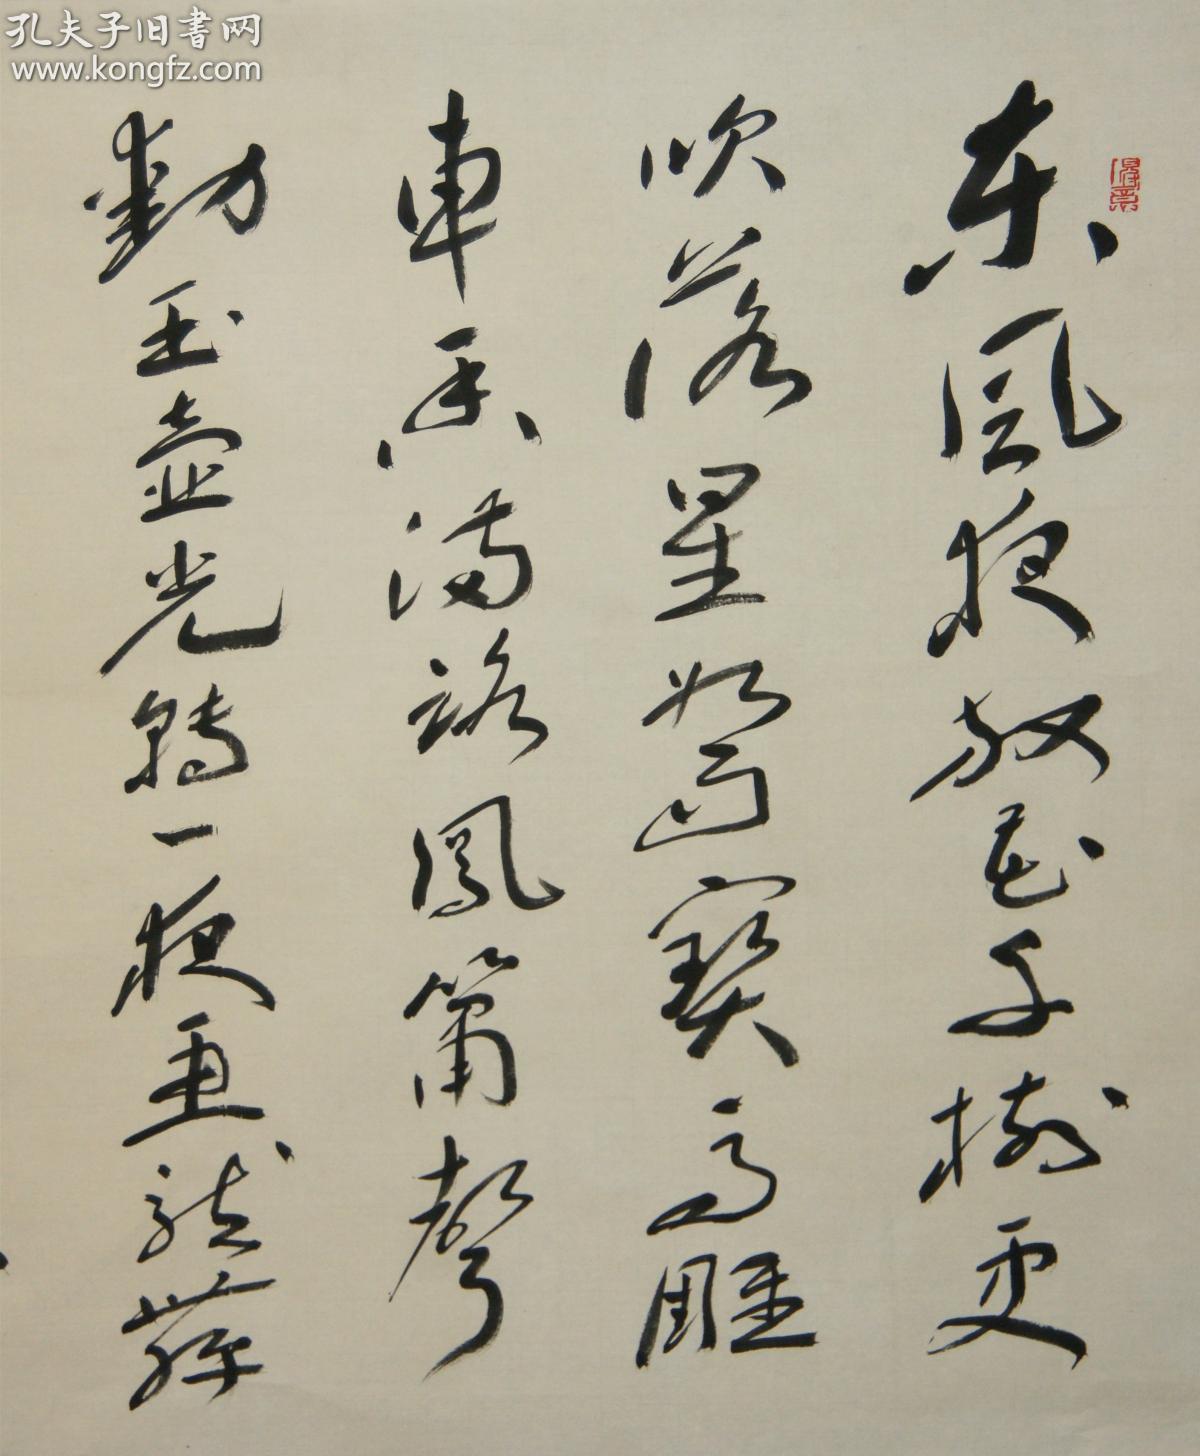 孔夫子旧書网
www.kongfz.com
東風夜放花千樹更
吹落星如雨寶馬雕
車香滿路鳳簫聲
動玉壺光轉一夜魚龍舞